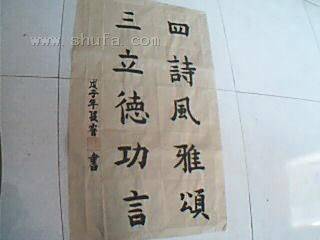 四詩風雅頌
三立德功言
戊子年
書
www.shufa.com